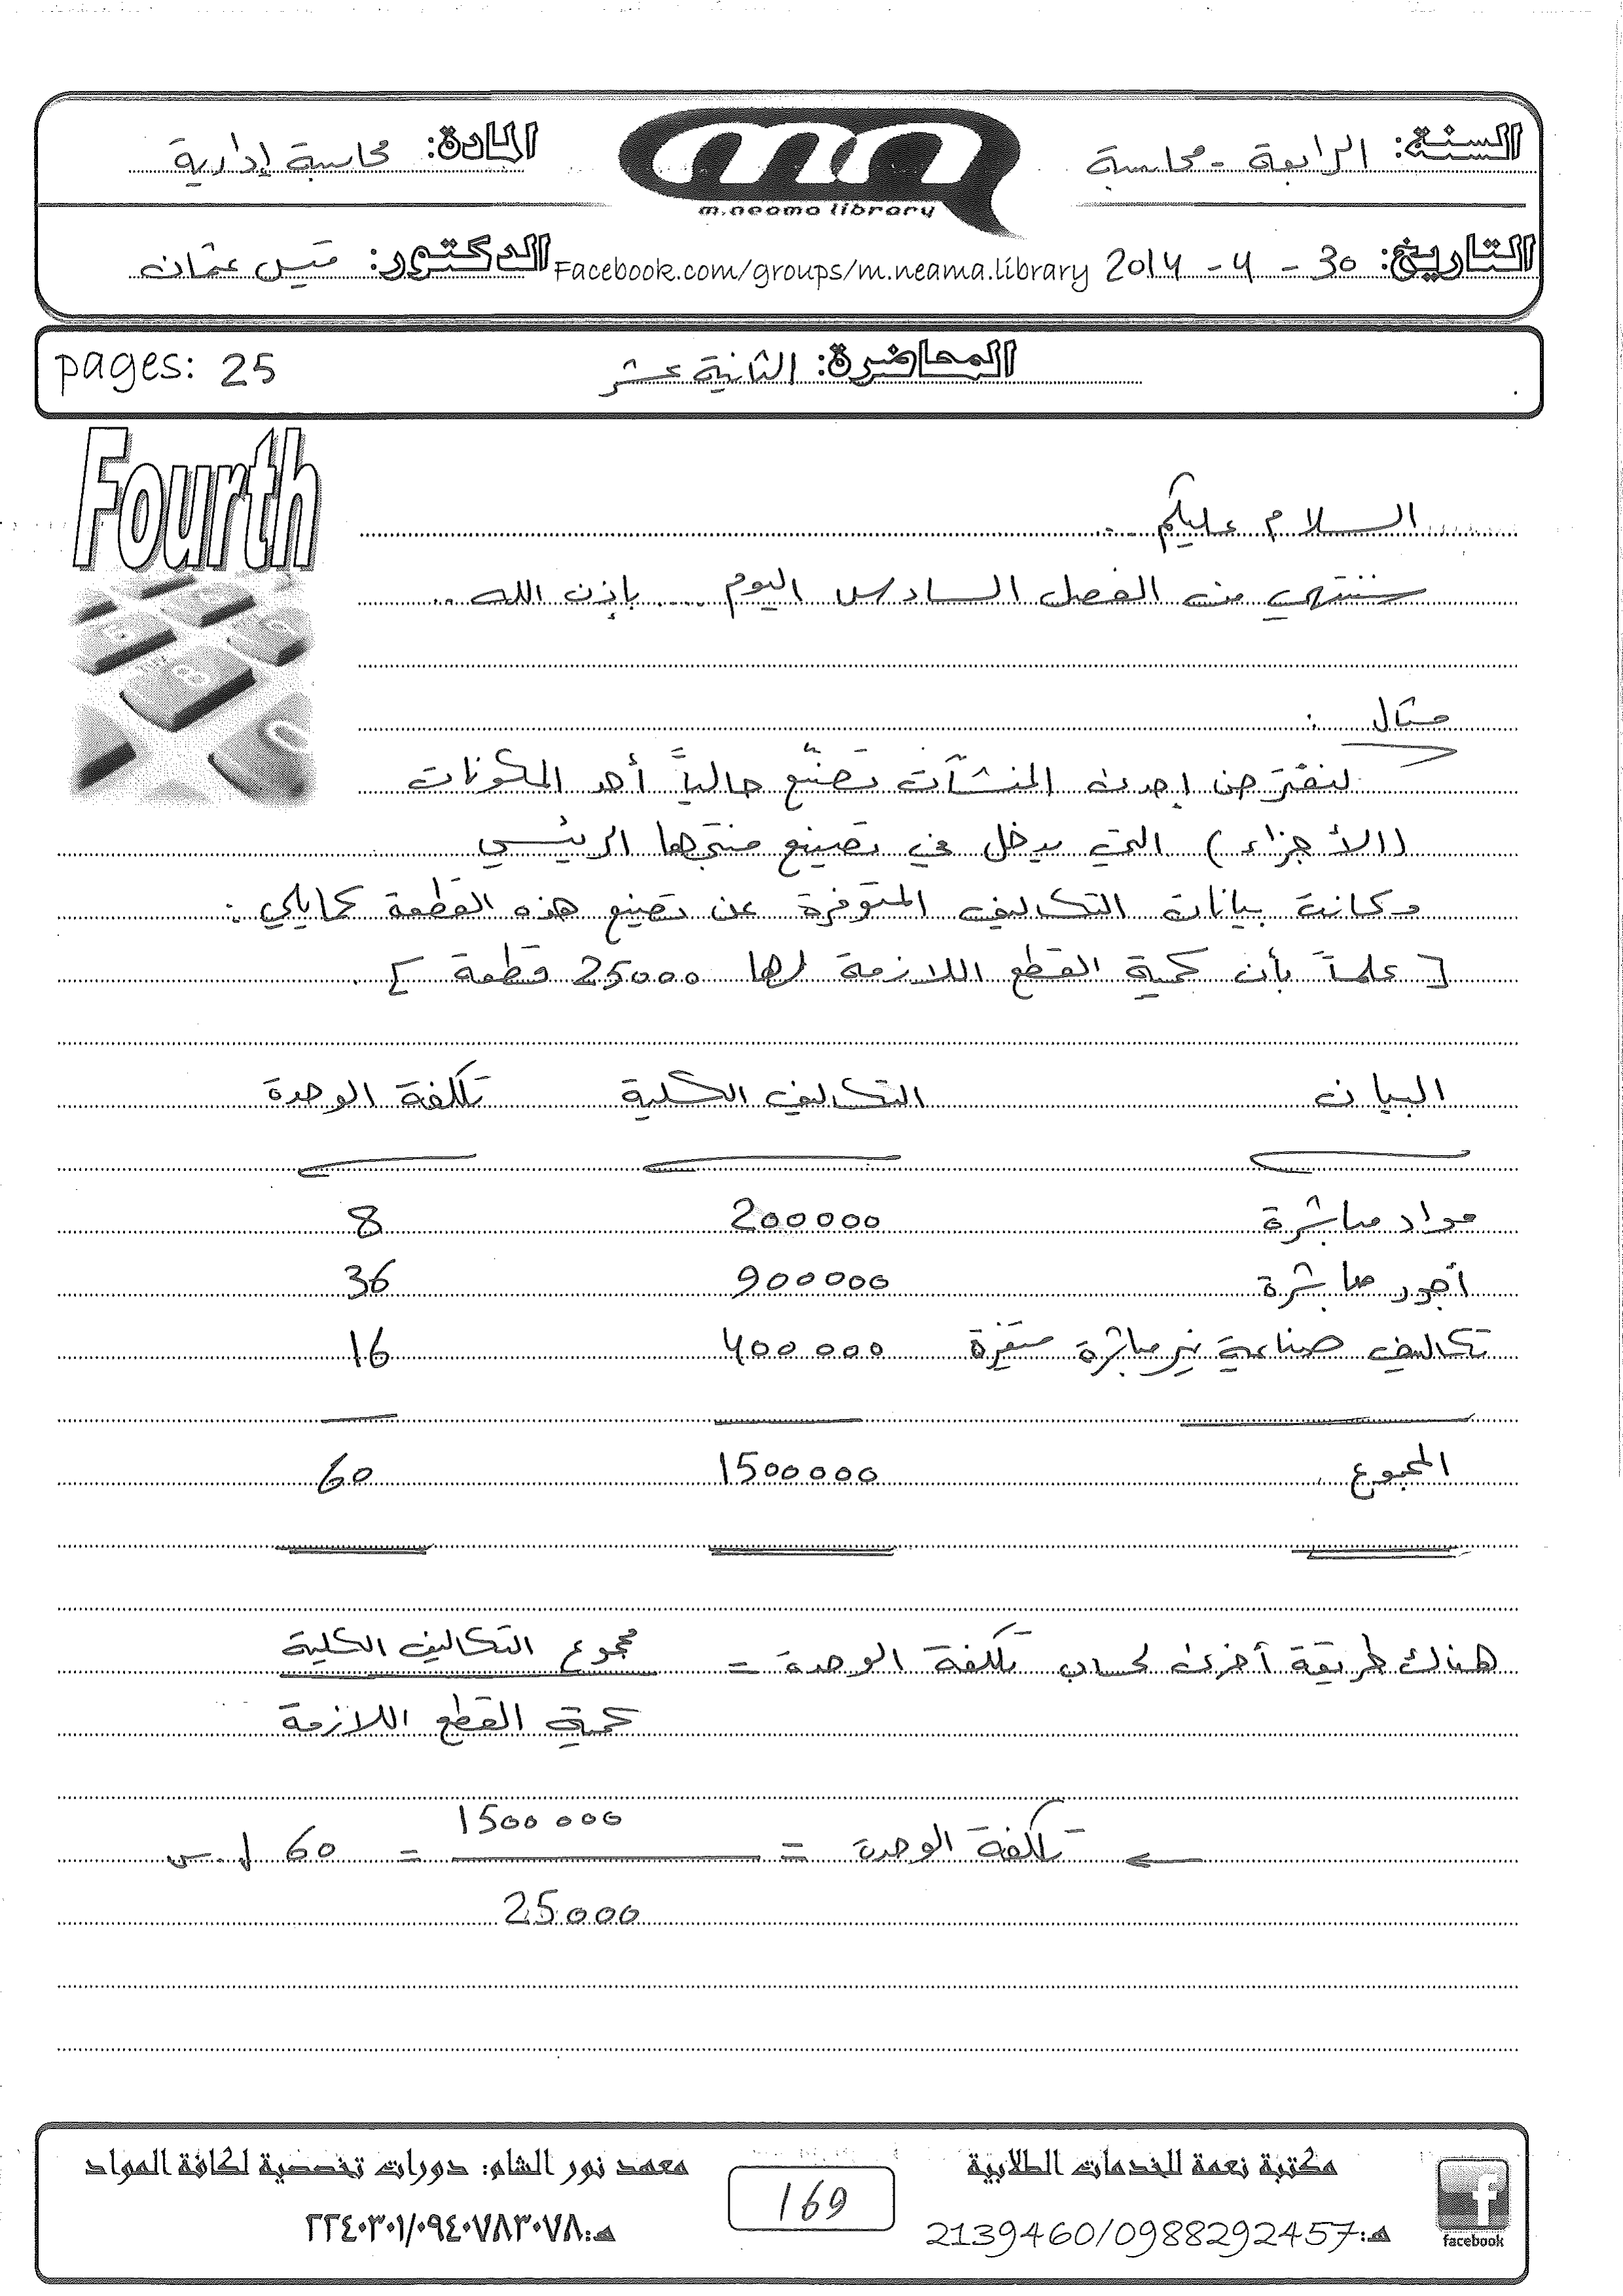 السنة: الرابعة - محاسبة
المادة: محاسبة إدارية
m.neama library
التاريخ: 30 - 4 - 2014
Facebook.com/groups/m.neama.library
الدكتور: قيس عثمان
المحاضرة: الثانية عشر
pages: 25
Fourth
السلام عليكم ..
سننتهي من الفصل السادس اليوم .... بإذن الله ..
مثال :
لنفترض إحدى المنشآت تصنّع حالياً أحد المكونات
(الأجزاء) التي يدخل في تصنيع منتجها الرئيسي
وكانت بيانات التكاليف المتوفرة عن تصنيع هذه القطعة كمايلي :
[ علماً بأن كمية القطع اللازمة لها 25000 قطعة ] .
البيان التكاليف الكلية تكلفة الوحدة
مواد مباشرة 200000 8
أجور مباشرة 900000 36
تكاليف صناعية غير مباشرة متغيرة 400000 16
المجموع 1500000 60
هناك طريقة أخرى لحساب تكلفة الوحدة = مجموع التكاليف الكلية
كمية القطع اللازمة
1500000
← تكلفة الوحدة = = 60 ل.س
25000
مكتبة نعمة للخدمات الطلابية
هـ: 2139460/0988292457
169
معهد نور الشام: دورات تخصصية لكافة المواد
هـ: ٢٢٤٠٣٠١/٠٩٤٠٧٨٣٠٧٨
facebook